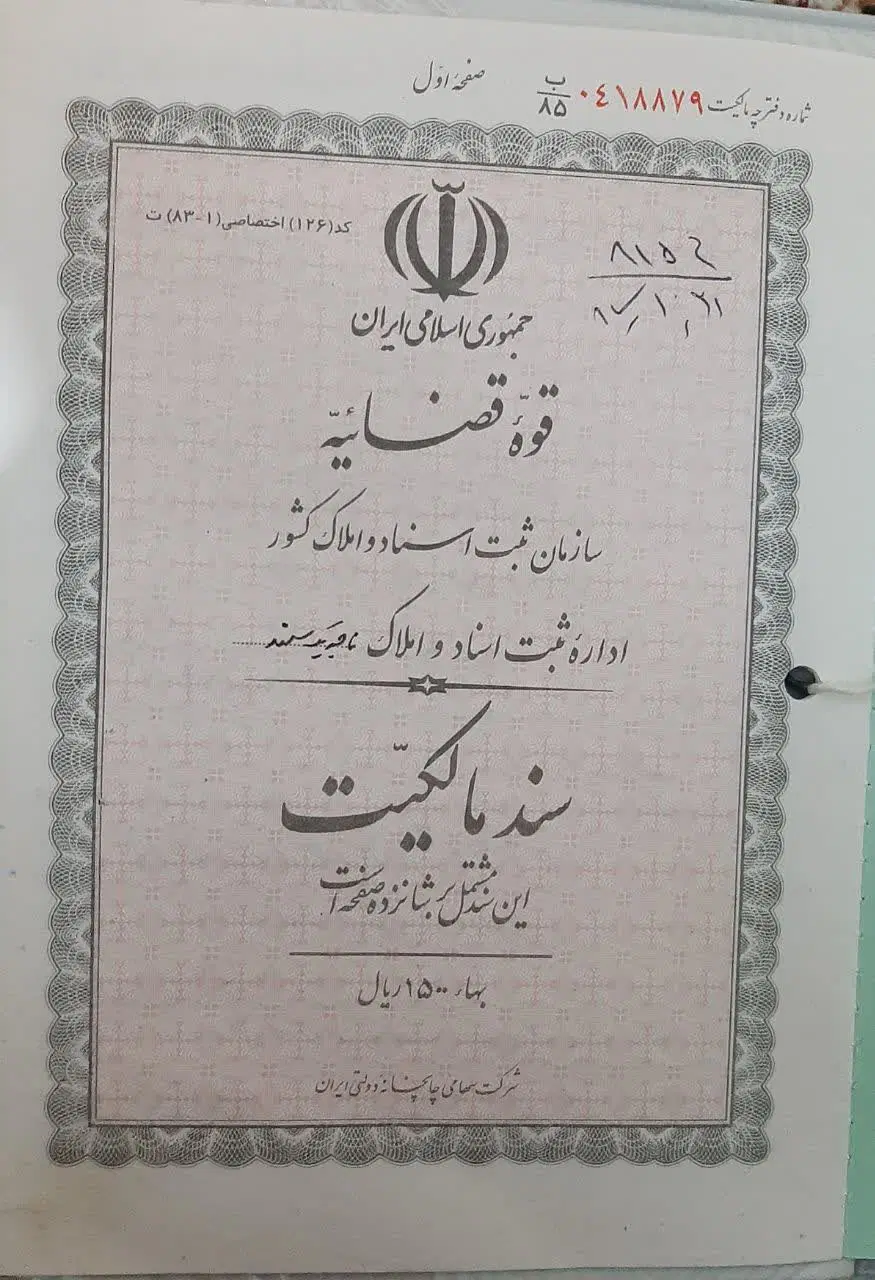 شماره دفترچه مالکیت ۰٤۱۸۸۷۹ ب/۸۵ صفحهٔ اوّل
کد(۱۲۶) اختصاصی(۱-۸۳) ت
جمهوری اسلامی ایران
قوّهٔ قضائیّه
سازمان ثبت اسناد و املاک کشور
ادارهٔ ثبت اسناد و املاک ناحیه یک
سند مالکیّت
این سند مشتمل بر شانزده صفحه است
بهاء ۱۵۰۰ ریال
شرکت سهامی چاپخانهٔ دولتی ایران